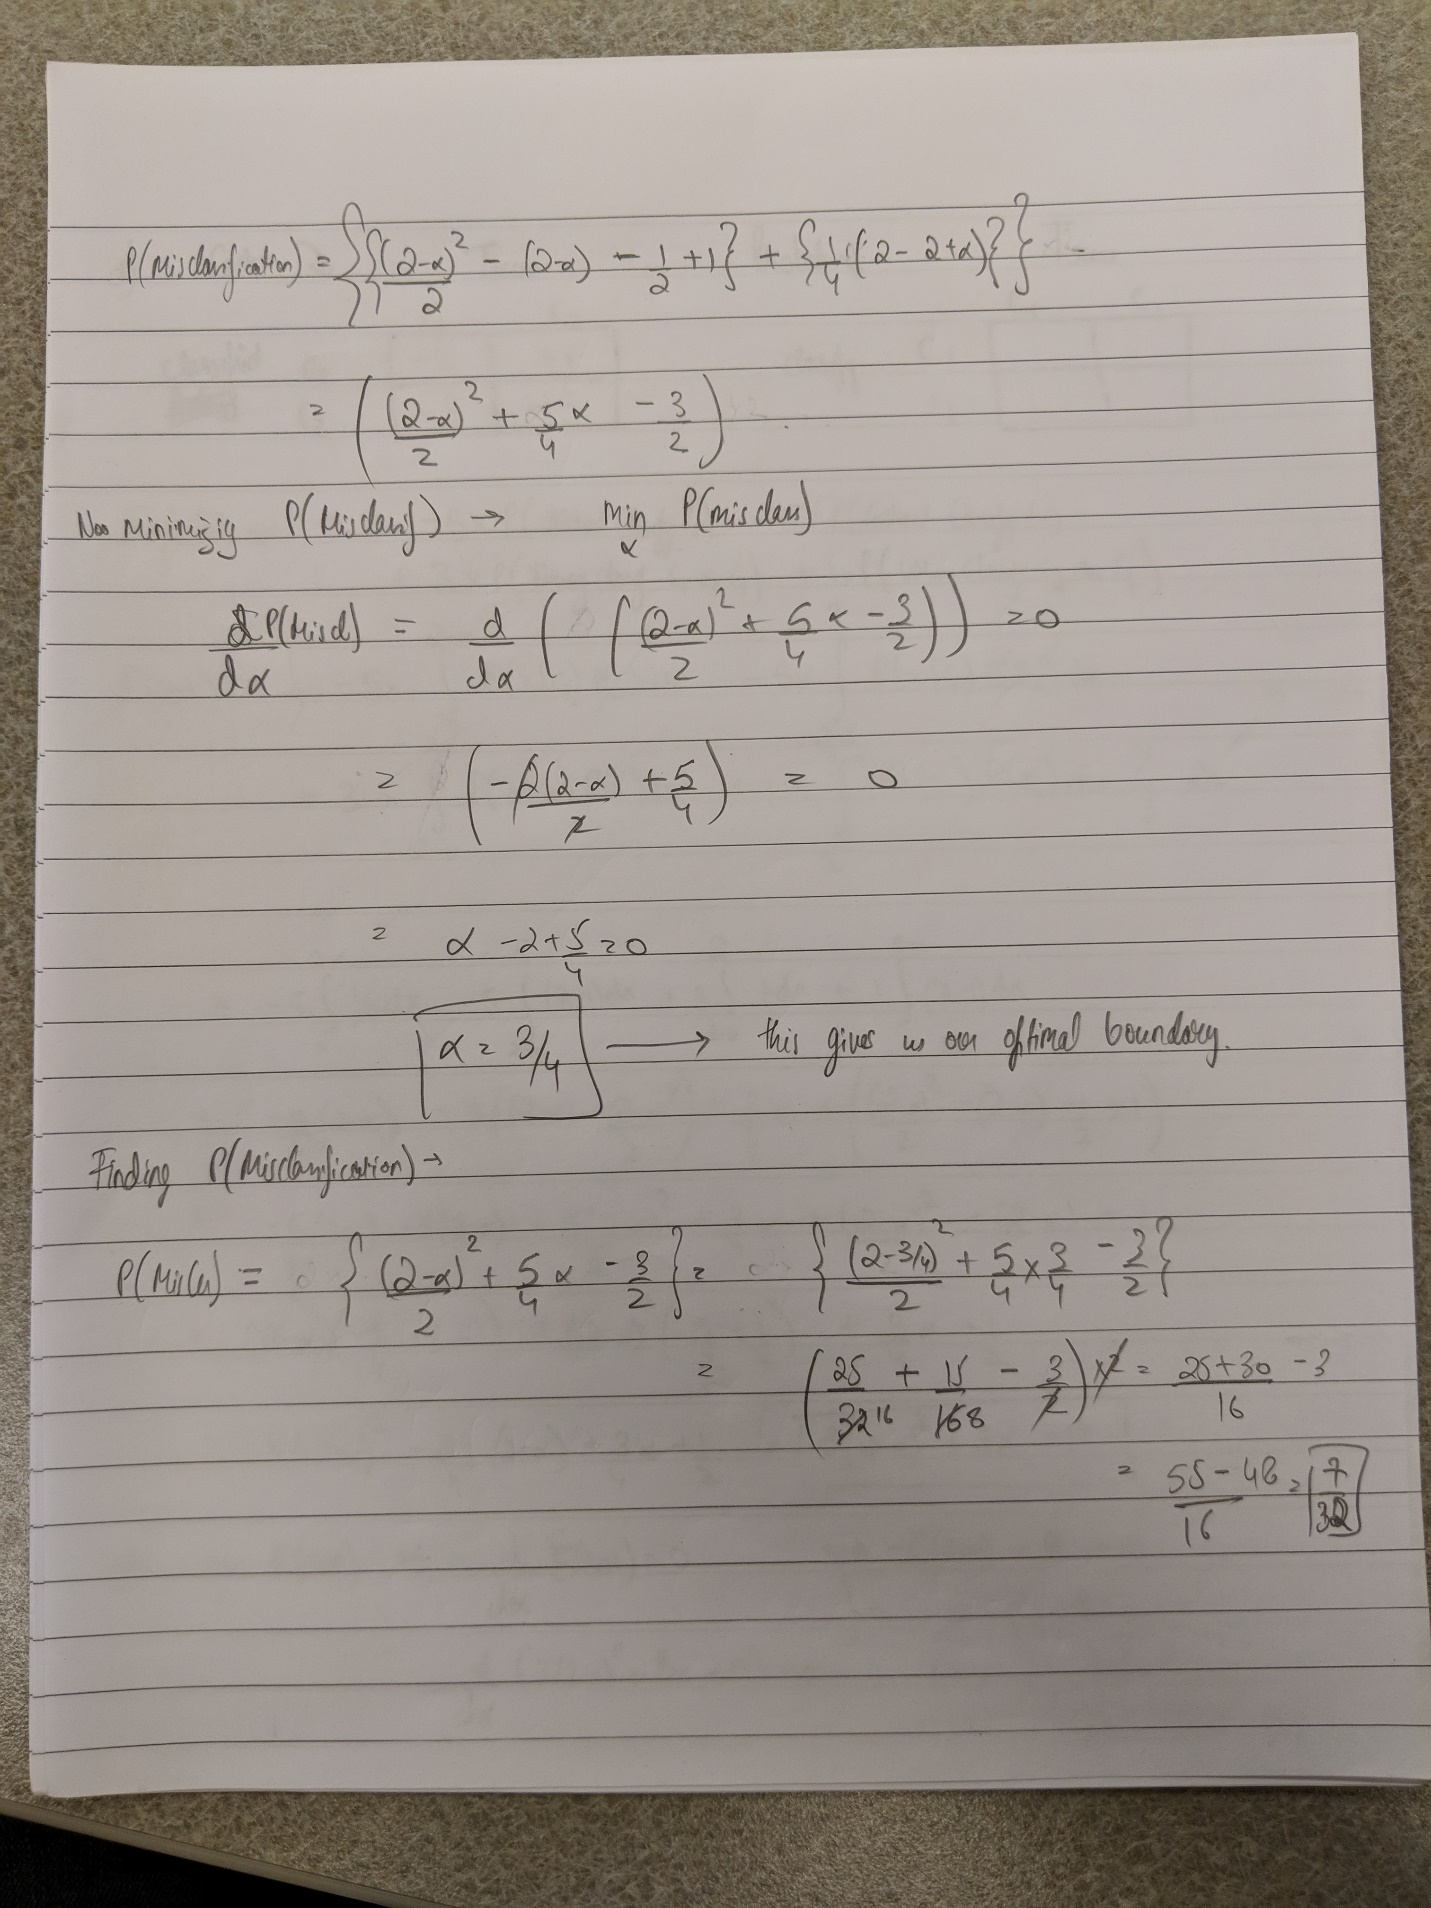 P(Misclassification) = {{(2-α)²/2 - (2-α) - 1/2 + 1} + {1/4 (2 - 2+α)}}
= ((2-α)²/2 + 5/4 α - 3/2)
Now Minimizig P(Misclassif) → min_α P(misclass)
d P(Miscl)/dα = d/dα (((2-α)²/2 + 5/4 α - 3/2)) = 0
= (-2(2-α)/2 + 5/4) = 0
= α - 2 + 5/4 = 0
α = 3/4 → this gives us our optimal boundary.
Finding P(Misclassification) →
P(Miscla) = {(2-α)²/2 + 5/4 α - 3/2} = {(2-3/4)²/2 + 5/4 × 3/4 - 3/2}
= (25/32 16 + 15/16 8 - 3/2) ×2 = 25+30/16 - 3
= 55-48/16 = 7/32